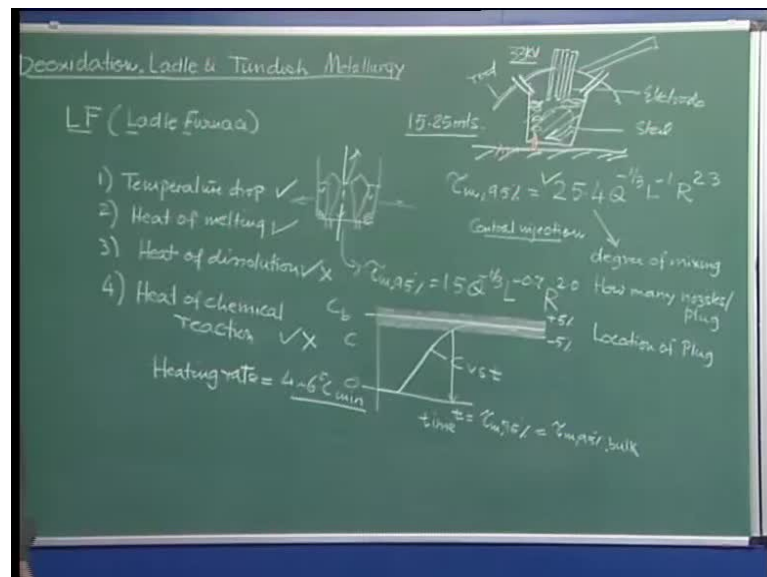 Deoxidation, Ladle & Tundish Metallurgy
LF (Ladle Furnace)
1) Temperature drop ✓
2) Heat of melting ✓
3) Heat of dissolution ✓ X
4) Heat of chemical
reaction ✓ X
Heating rate = 4-6°C/min
32KV
rod
Eletrode
Steel
15-25mts.
τm,95% = 25.4 Q^-1/3 L^-1 R^2.3
Central injection
degree of mixing
How many nozzles/
plug
Location of Plug
τm,95% = 15 Q^-1/3 L^-0.7 R^2.0
Cb
C
0
+5%
-5%
C vs t
time t = τm,95% = τm,95%, bulk